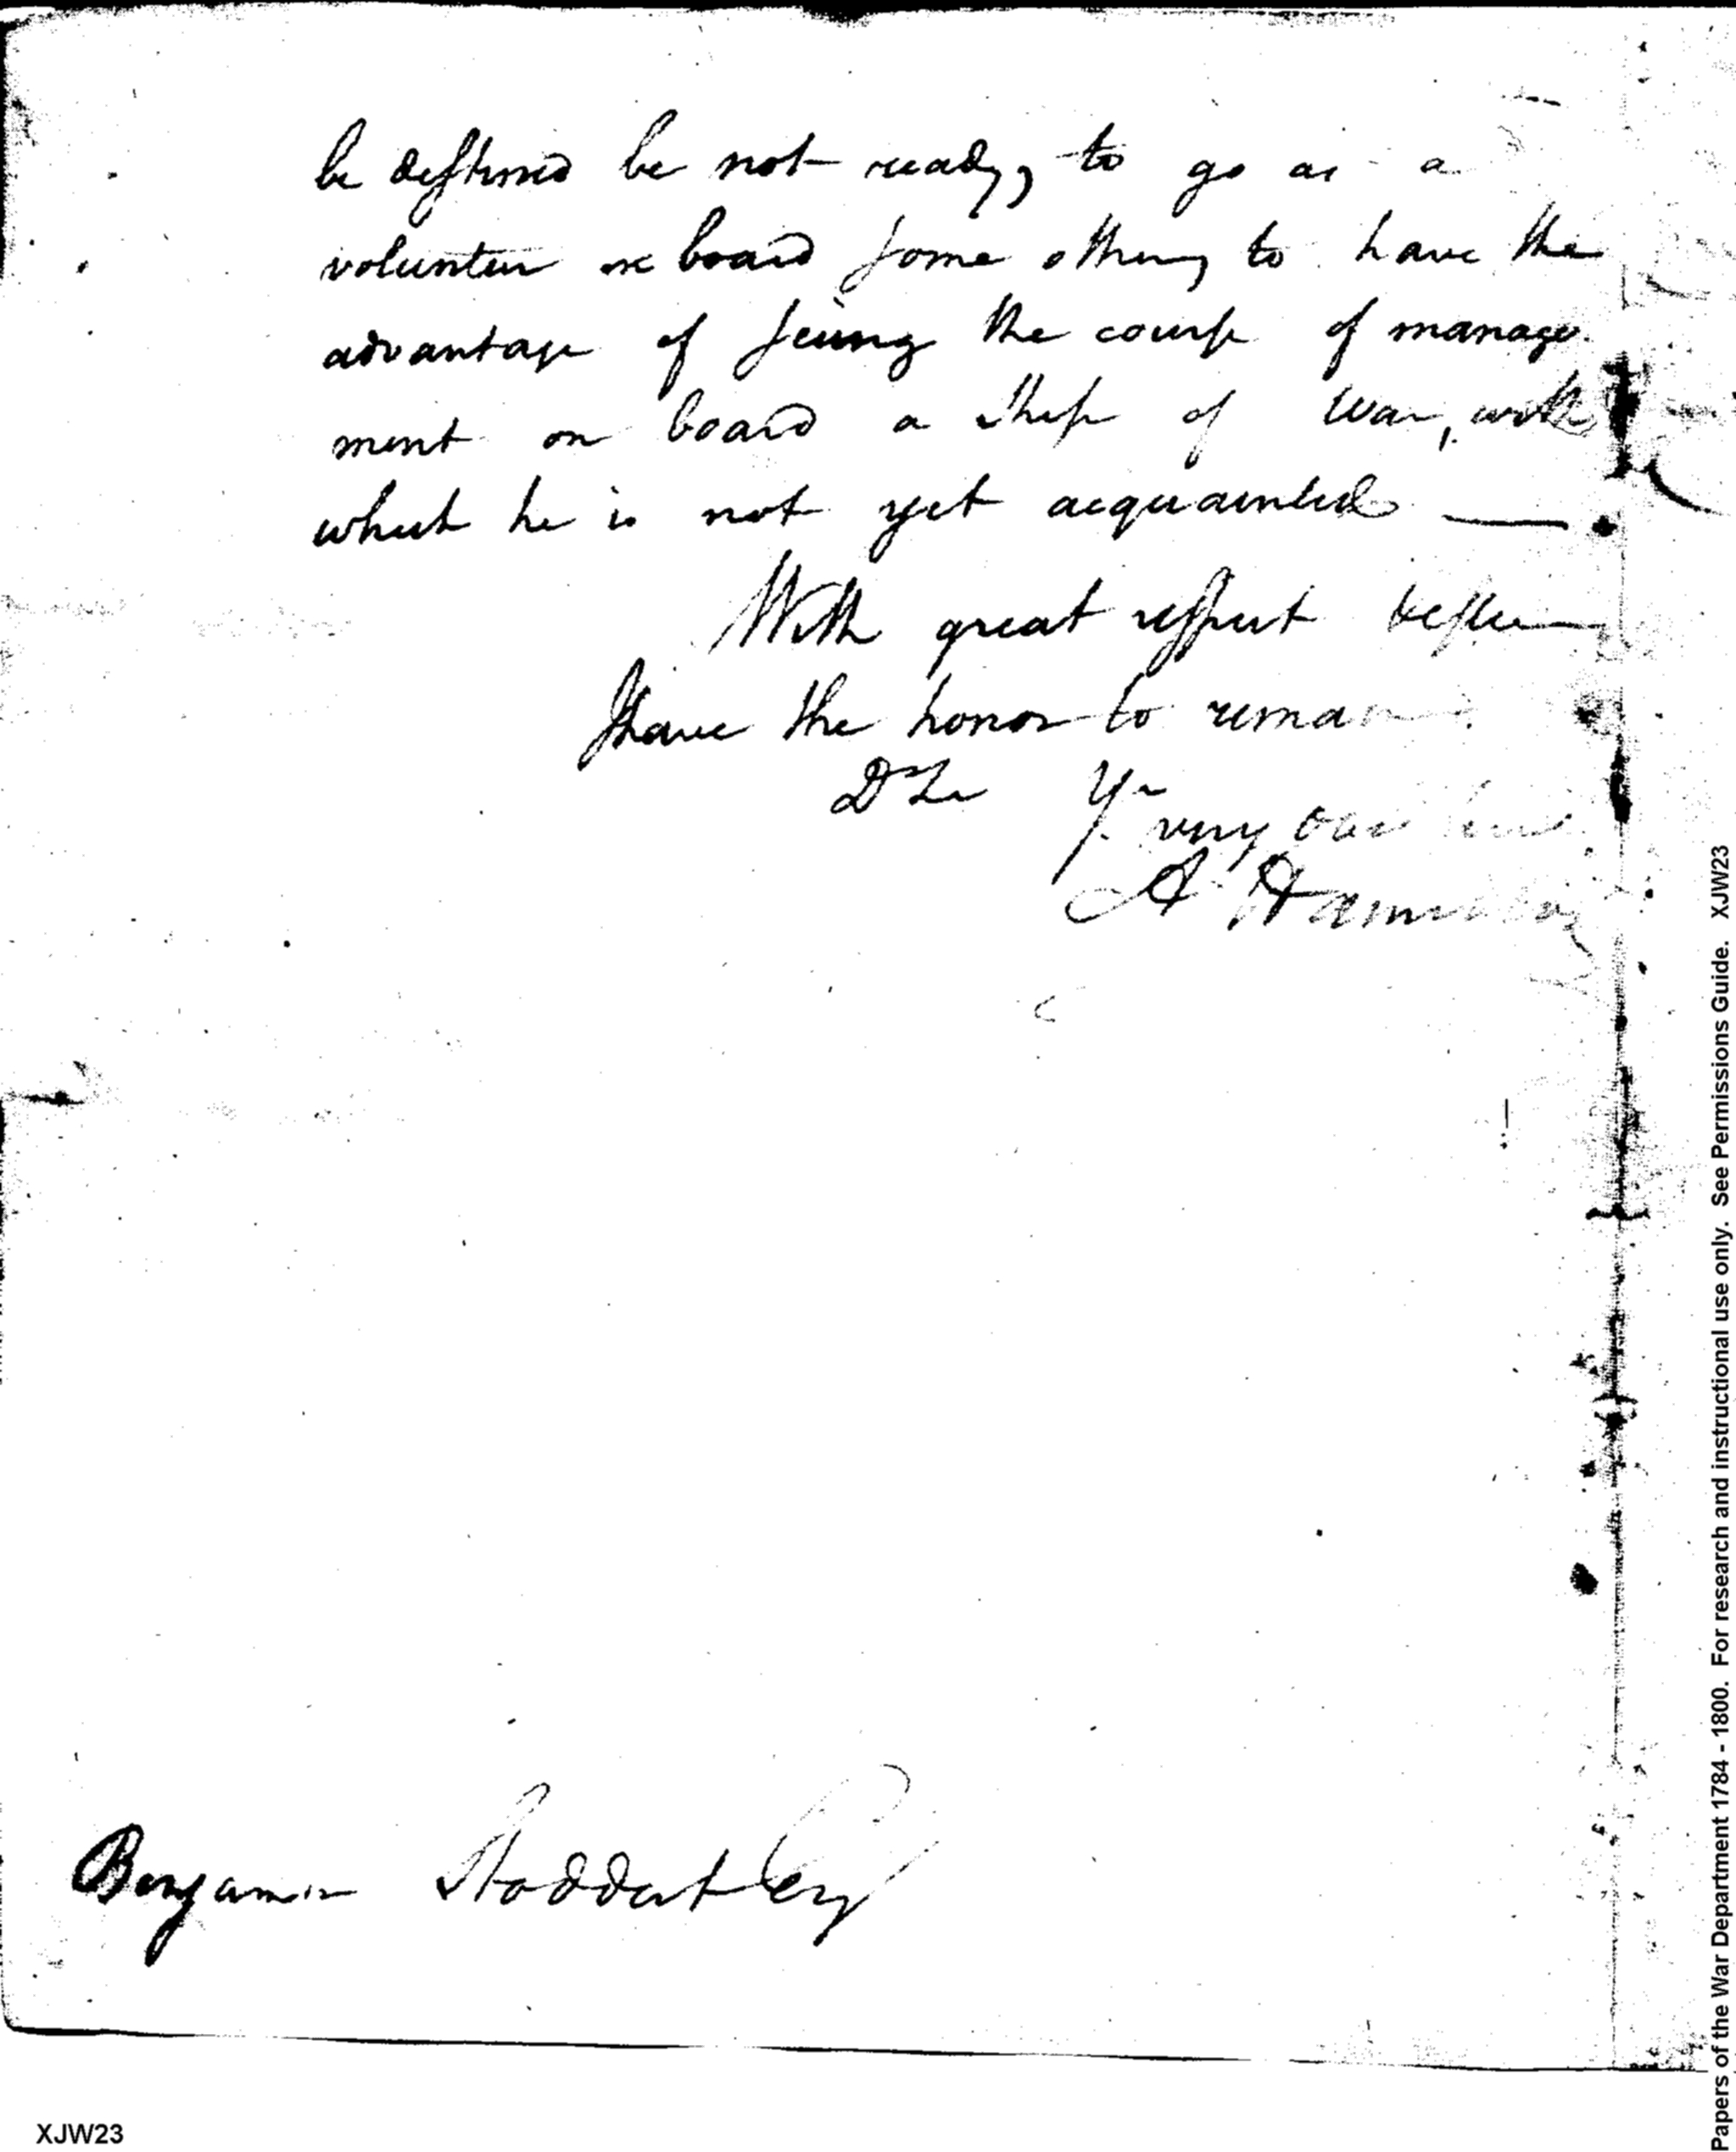 be destined be not ready, to go as a
volunteer on board some other, to have the
advantage of seeing the course of manage-
ment on board a ship of War, with
which he is not yet acquainted —
With great respect & esteem
I have the honor to remain
Dr Sir Yr
very obed serv
A Hamilton
Benjamin Stoddert Esq
XJW23
Papers of the War Department 1784 - 1800. For research and instructional use only. See Permissions Guide. XJW23